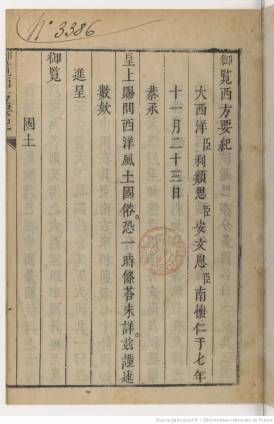 N° 3386
御覧西方要紀
大西洋臣利類思臣安文思臣南懷仁于七年
十一月二十三日
恭承
皇上賜問西洋風土國俗。恐一時條荅未詳。茲謹述
數欵
進呈
御覧
國土
Source gallica.bnf.fr / Bibliothèque nationale de France